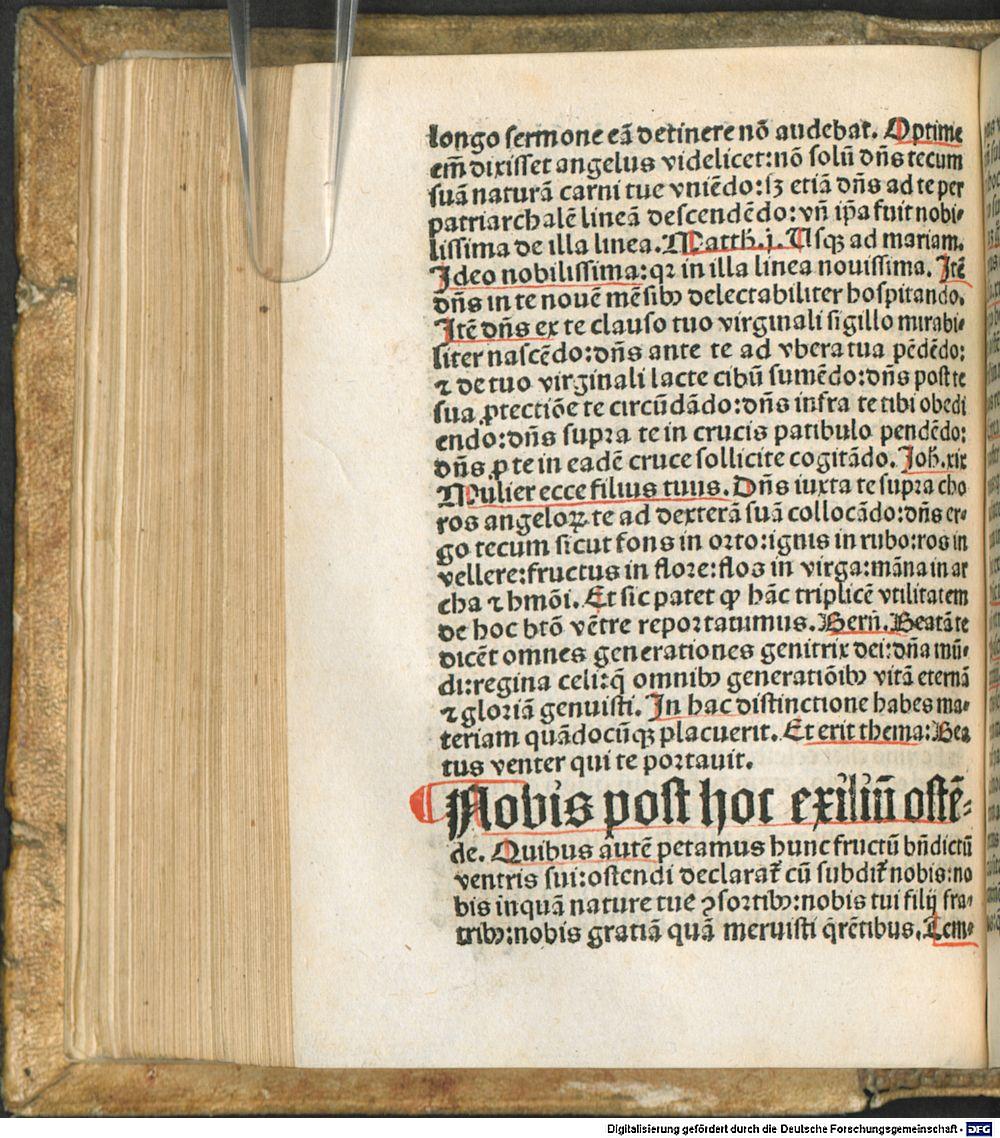 longo sermone eã detinere nõ audebat. Optime
em̃ dixisset angelus videlicet: nõ solũ dñs tecum
suã naturã carni tue vniẽdo: sȝ etiã dñs ad te per
patriarchalẽ lineã descendẽdo: vñ ip̃a fuit nobi⸗
lissima de illa linea. Matth. j. Usqꝫ ad mariam.
Ideo nobilissima: qꝛ in illa linea nouissima. Itẽ
dñs in te nouẽ mẽsibꝰ delectabiliter hospitando.
Itẽ dñs ex te clauso tuo virginali sigillo mirabi⸗
liter nascẽdo: dñs ante te ad vbera tua pẽdẽdo:
⁊ de tuo virginali lacte cibũ sumẽdo: dñs post te
sua ꝓtectiõe te circũdãdo: dñs infra te tibi obedi
endo: dñs supra te in crucis patibulo pendẽdo:
dñs ꝓ te in eadẽ cruce sollicite cogitãdo. Joh̃. xix
Mulier ecce filius tuus. Dñs iuxta te supra cho
ros angeloꝝ te ad dexterã suã collocãdo: dñs er⸗
go tecum sicut fons in orto: ignis in rubo: ros in
vellere: fructus in flore: flos in virga: mãna in ar
cha ⁊ hmõi. Et sic patet ꝙ hãc triplicẽ vtilitatem
de hoc btõ vẽtre reportatumus. Berñ. Beatã te
dicẽt omnes generationes genitrix dei: dña mũ⸗
di: regina celi: q̃ omnibꝰ generatiõibꝰ vitã eternã
⁊ gloriã genuisti. In hac distinctione habes ma⸗
teriam quãdocũqꝫ placuerit. Et erit thema: Bea
tus venter qui te portauit.
Nobis post hoc exiliũ ostẽ⸗
de. Quibus autẽ petamus hunc fructũ bñdictũ
ventris sui: ostendi declarat᷑ cũ subdit᷑ nobis: no
bis inquã nature tue ꝯsortibꝰ: nobis tui filij fra⸗
tribꝰ: nobis gratiã quã meruisti q̃rẽtibus. Tem⸗
Digitalisierung gefördert durch die Deutsche Forschungsgemeinschaft - DFG